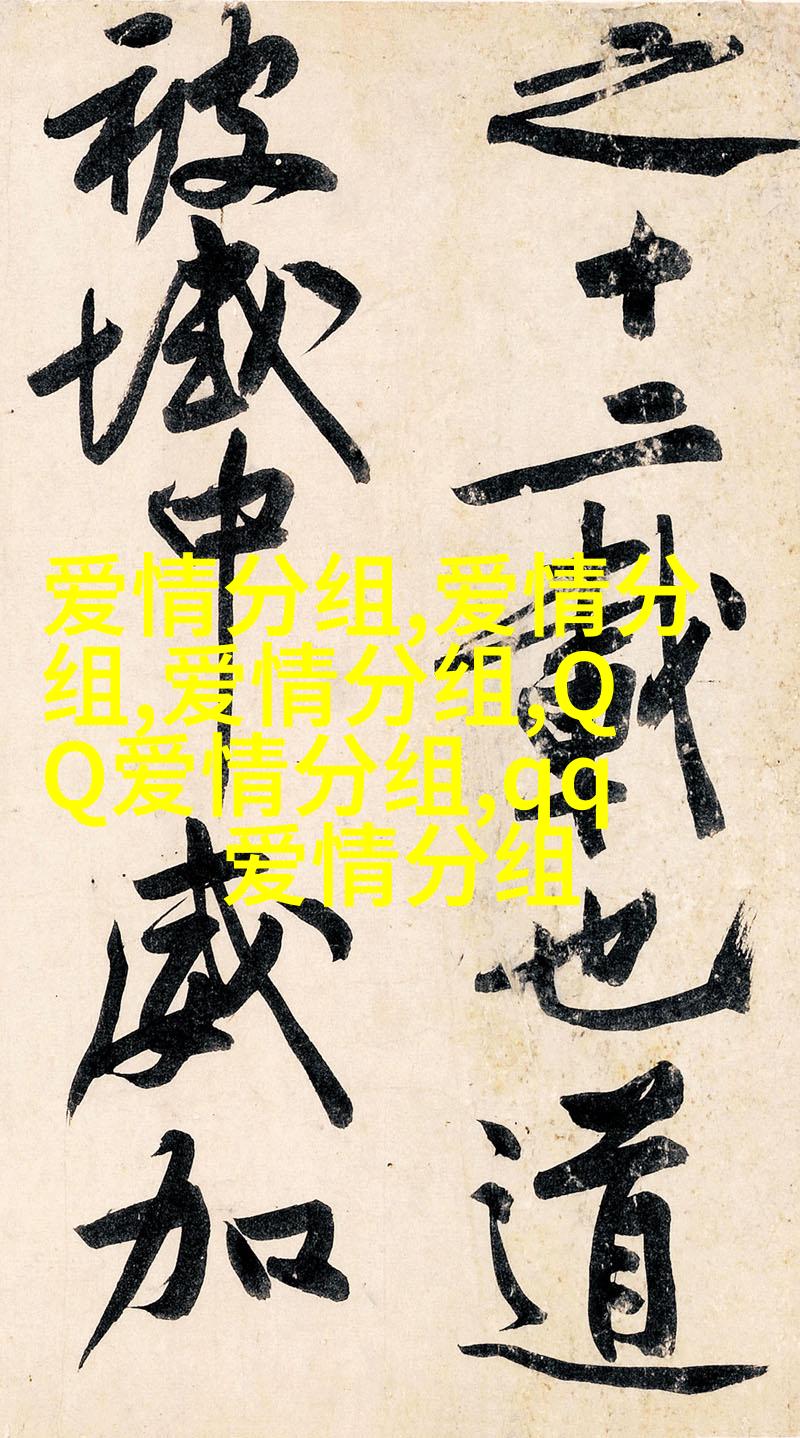 之十二載也道
被域中威加
爱情分组,爱情分
组,爱情分组,Q
Q爱情分组,qq
爱情分组